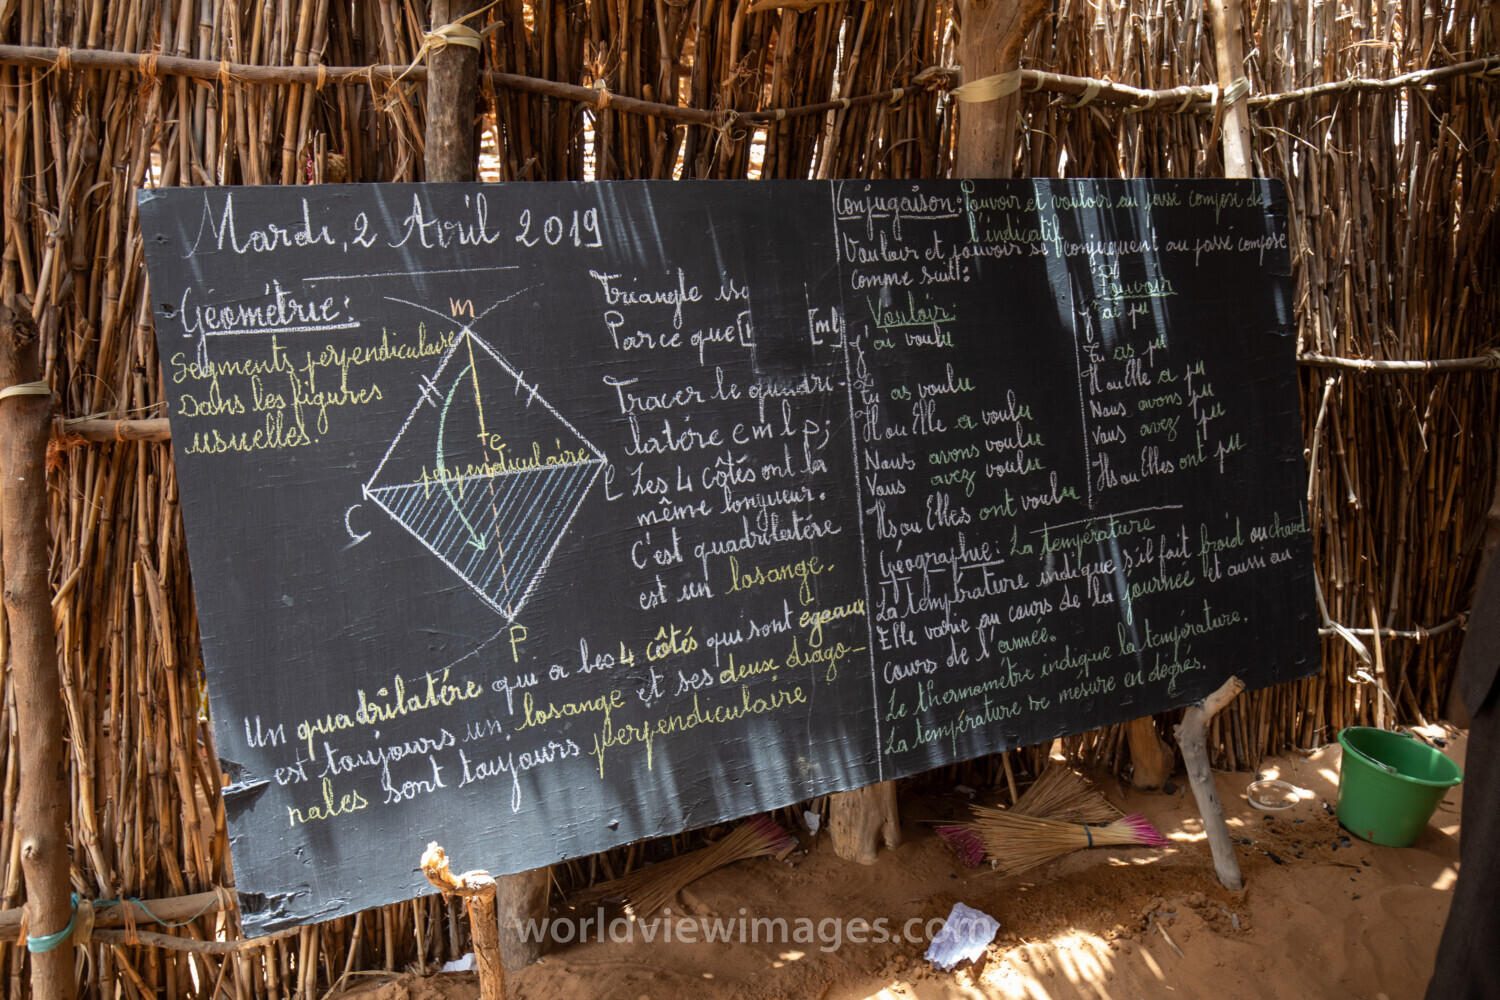 Mardi, 2 Avril 2019
Géométrie:
Segments perpendiculaire
Dans les figures
usuelles.
m
e
perpendiculaire
C
l
P
Triangle iso
Parce que [ [ml
Tracer le quadri-
latére c m l p;
Les 4 côtés ont la
même longueur.
C'est quadrilatére
est un losange.
Un quadrilatére qui a les 4 côtés qui sont égaux
est toujours un losange et ses deux diago-
nales sont toujours perpendiculaire
Conjugaison: Pouvoir et vouloir au passé composé de
l'indicatif
Vouloir et pouvoir se conjuguent au passé composé
comme suit:
Vouloir:
j'ai voulu
Tu as voulu
Il ou Elle a voulu
Nous avons voulu
Vous avez voulu
Ils ou Elles ont voulu
Pouvoir
j'ai pu
Tu as pu
Il ou Elle a pu
Nous avons pu
Vous avez pu
Ils ou Elles ont pu
Géographie: La température
La température indique s'il fait froid ou chaud.
Elle varie au cours de la journée et aussi au
cours de l'année.
Le thermométre indique la température.
La température se mésure en dégrés.
worldviewimages.com